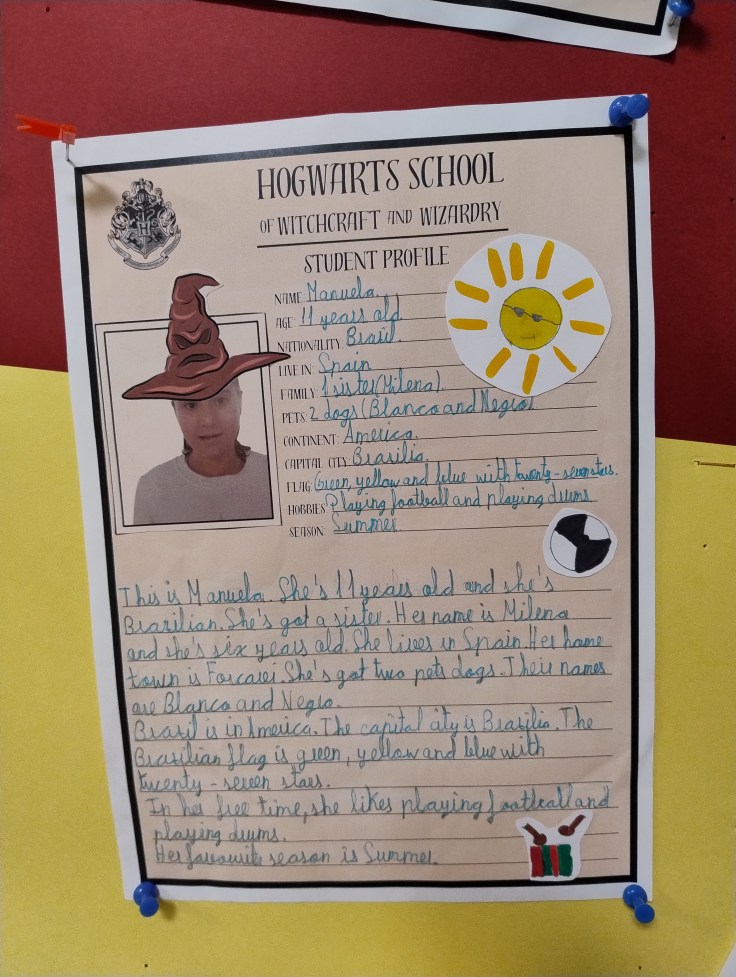 HOGWARTS SCHOOL
OF WITCHCRAFT AND WIZARDRY
STUDENT PROFILE
NAME: Manuela
AGE: 11 years old
NATIONALITY Brasil
LIVE IN: Spain
FAMILY: 1 sister (Milena).
PETS: 2 dogs (Blanco and Negro)
CONTINENT: America.
CAPITAL CITY: Brasilia.
FLAG: Green, yellow and blue with twenty-seven stars.
HOBBIES: Playing football and playing drums
SEASON: Summer
This is Manuela. She's 11 years old and she's
Brazilian. She's got a sister. Her name is Milena
and she's six years old. She lives in Spain. Her home
town is Forcarei. She's got two pets dogs. Their names
are Blanco and Negro.
Brazil is in America. The capital city is Brasilia. The
Brazilian flag is green, yellow and blue with
twenty-seven stars.
In her free time, she likes playing football and
playing drums.
Her favourite season is Summer.